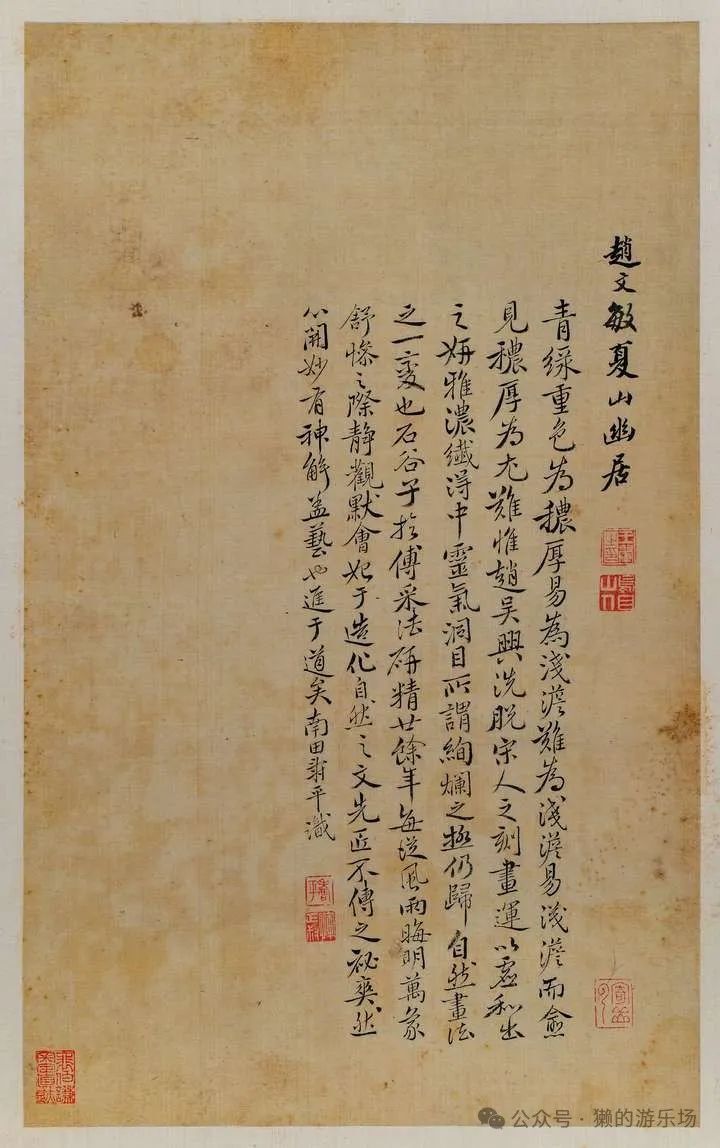 趙文敏夏山幽居
青綠重色為穠厚易為淺澹難為淺澹易淺澹而愈
見穠厚為尤難惟趙吳興洗脫宋人之刻畫運以虛和出
之妍雅濃纖得中靈氣洞目所謂絢爛之極仍歸自然畫法
之一變也石谷子於傅采法研精廿餘年每從風雨晦明萬象
舒慘之際靜觀默會妃于造化自然之文先匠不傳之祕爽然
心開妙有神解蓋藝也進于道矣南田壽平識
公众号·獭的游乐场